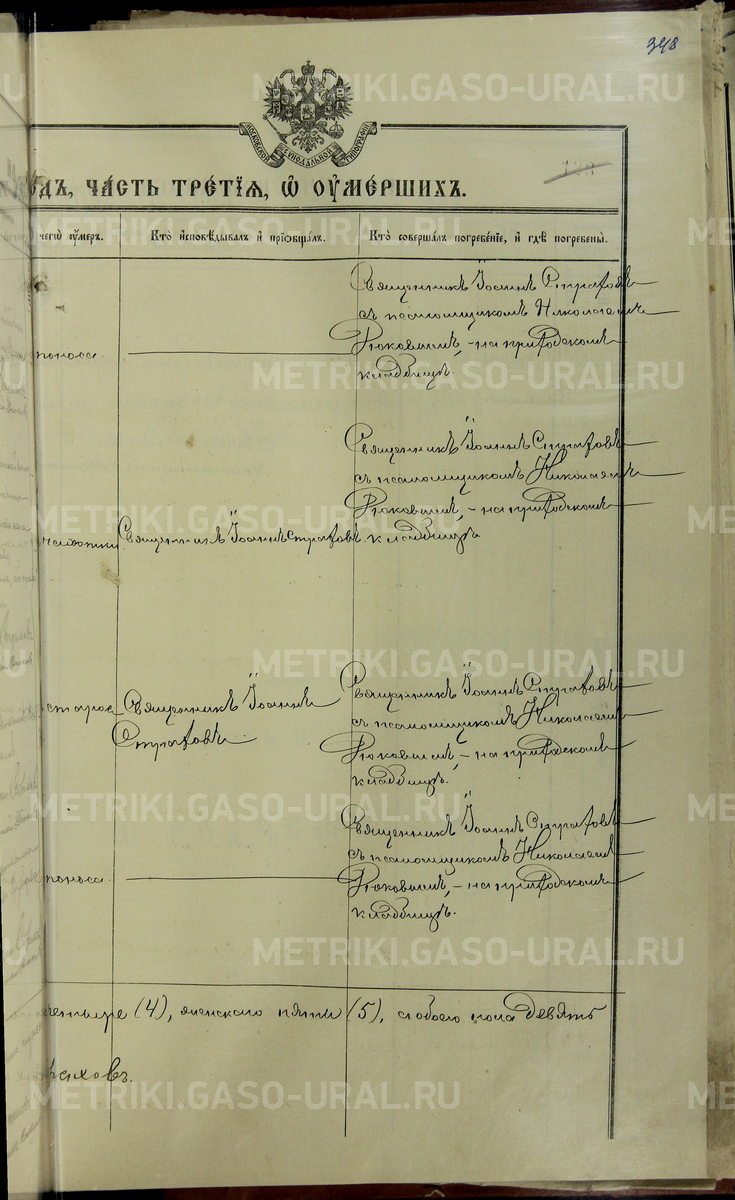 348
МОСКОВСКОЙ СѴНОДАЛЬНОЙ ТИПОГРАФІИ
ЧА́СТЬ ТРЕ́ТІЯ, Ѡ҆ ОУ҆МЕ́РШИХЪ.
чегѡ̀ оу҆́меръ.
Кто̀ и҆сповѣ́дывалъ и҆ прїѡбща́лъ.
Кто̀ соверша́лъ погребе́нїе, и҆ гдѣ̀ погребены̀.
поноса.
Священникъ Іоаннъ Страховъ
съ псаломщикомъ Николаемъ
на приходскомъ
кладбищѣ.
чахотки
Священникъ Іоаннъ Страховъ
Священникъ Іоаннъ Страховъ
съ псаломщикомъ Николаемъ
на приходскомъ
кладбищѣ
старос
Священникъ Іоаннъ
Страховъ.
Священникъ Іоаннъ Страховъ
съ псаломщикомъ Николаемъ
на приходскомъ
кладбищѣ.
поноса.
Священникъ Іоаннъ Страховъ
съ псаломщикомъ Николаемъ
на приходскомъ
кладбищѣ.
четыре (4), женскаго пять (5), а обоего пола девять
раховъ.
METRIKI.GASO-URAL.RU